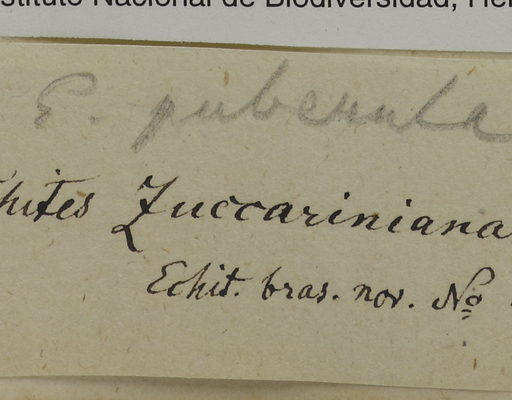 stituto Nacional de Biodiversidad, Her
E. puberula
hites Zuccariniana
Echit. bras. nov. No